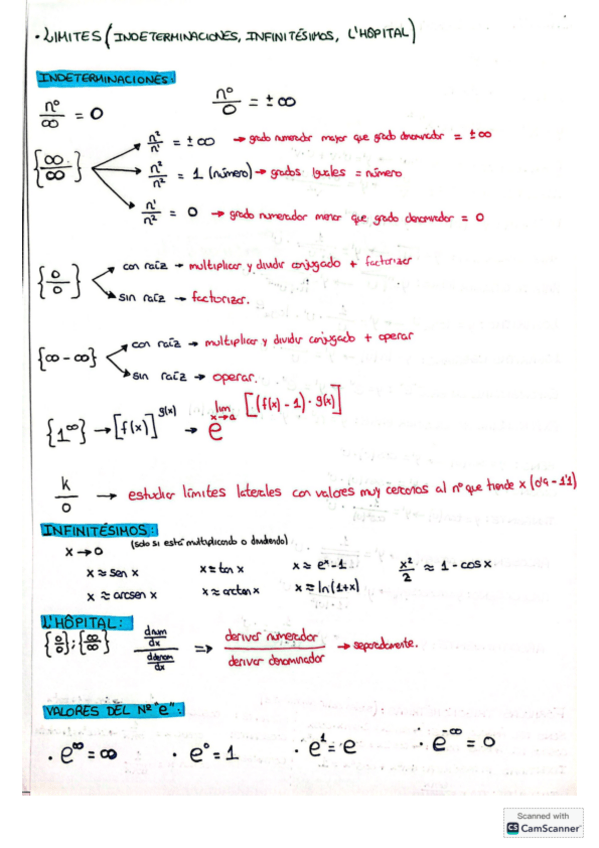 · LIMITES (INDETERMINACIONES, INFINITÉSIMOS, L'HÔPITAL)
INDETERMINACIONES:
nº/∞ = 0    nº/0 = ±∞
{∞/∞}
n²/n¹ = ±∞ → grado numerador mayor que grado denominador = ±∞
n²/n² = 1 (número) → grados iguales = número
n¹/n² = 0 → grado numerador menor que grado denominador = 0
{0/0}
con raíz → multiplicar y dividir conjugado + factorizar
sin raíz → factorizar.
{∞ - ∞}
con raíz → multiplicar y dividir conjugado + operar
sin raíz → operar.
{1^∞} → [f(x)]^g(x) → e^lim x→a [(f(x) - 1) · g(x)]
k/0 → estudiar límites laterales con valores muy cercanos al nº que tiende x (0'9 - 1'1)
INFINITÉSIMOS:
x → 0 (solo si está multiplicando o dividiendo)
x ≈ sen x    x ≈ tan x    x ≈ e^x - 1    x²/2 ≈ 1 - cos x
x ≈ arcsen x    x ≈ arctan x    x ≈ ln(1+x)
L'HÔPITAL:
{0/0}; {∞/∞}    dnum/dx / ddenom/dx    =>    derivar numerador / derivar denominador → separadamente.
VALORES DEL Nº "e":
· e^∞ = ∞    · e^0 = 1    · e^1 = e    · e^-∞ = 0
Scanned with
CS CamScanner